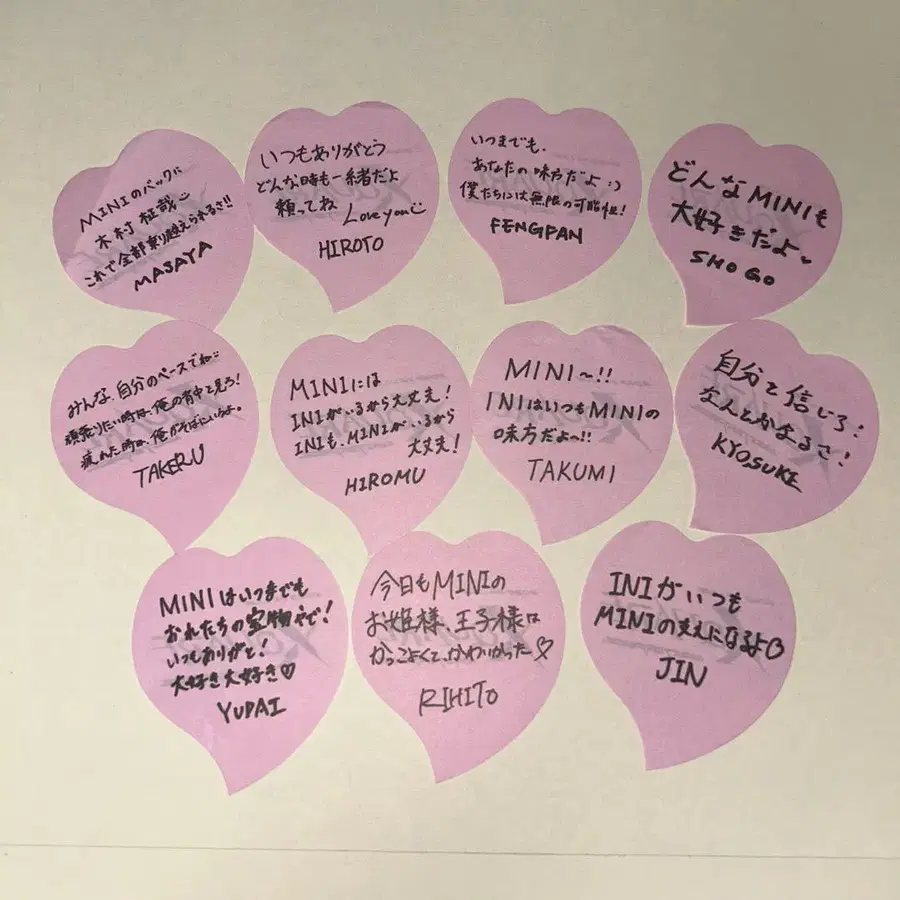 MINIのバックに
木村柾哉
これで全部乗り越えられるさ!!
MASAYA
いつもありがとう
どんな時も一緒だよ
頼ってね Love you
HIROTO
いつまでも、
あなたの味方だよ :)
僕たちには無限の可能性!
FENGFAN
どんなMINIも
大好きだよ
SHOGO
みんな、自分のペースでね
頑張りたい時は、俺の背中を見ろ!
疲れた時は、俺がそばにいるよ。
TAKERU
MINIには
INIがいるから大丈夫!
INIも、MINIがいるから
大丈夫!
HIROMU
MINI〜!!
INIはいつもMINIの
味方だよ〜!!
TAKUMI
自分を信じろ!
なんとかなるさ!
KYOSUKE
MINIはいつまでも
おれたちの宝物やで!
いつもありがと!
大好き大好き♡
YUDAI
今日もMINIの
お姫様、王子様は
かっこよくて、かわいかった♡
RIHITO
INIがいつも
MINIの支えになるよ
JIN